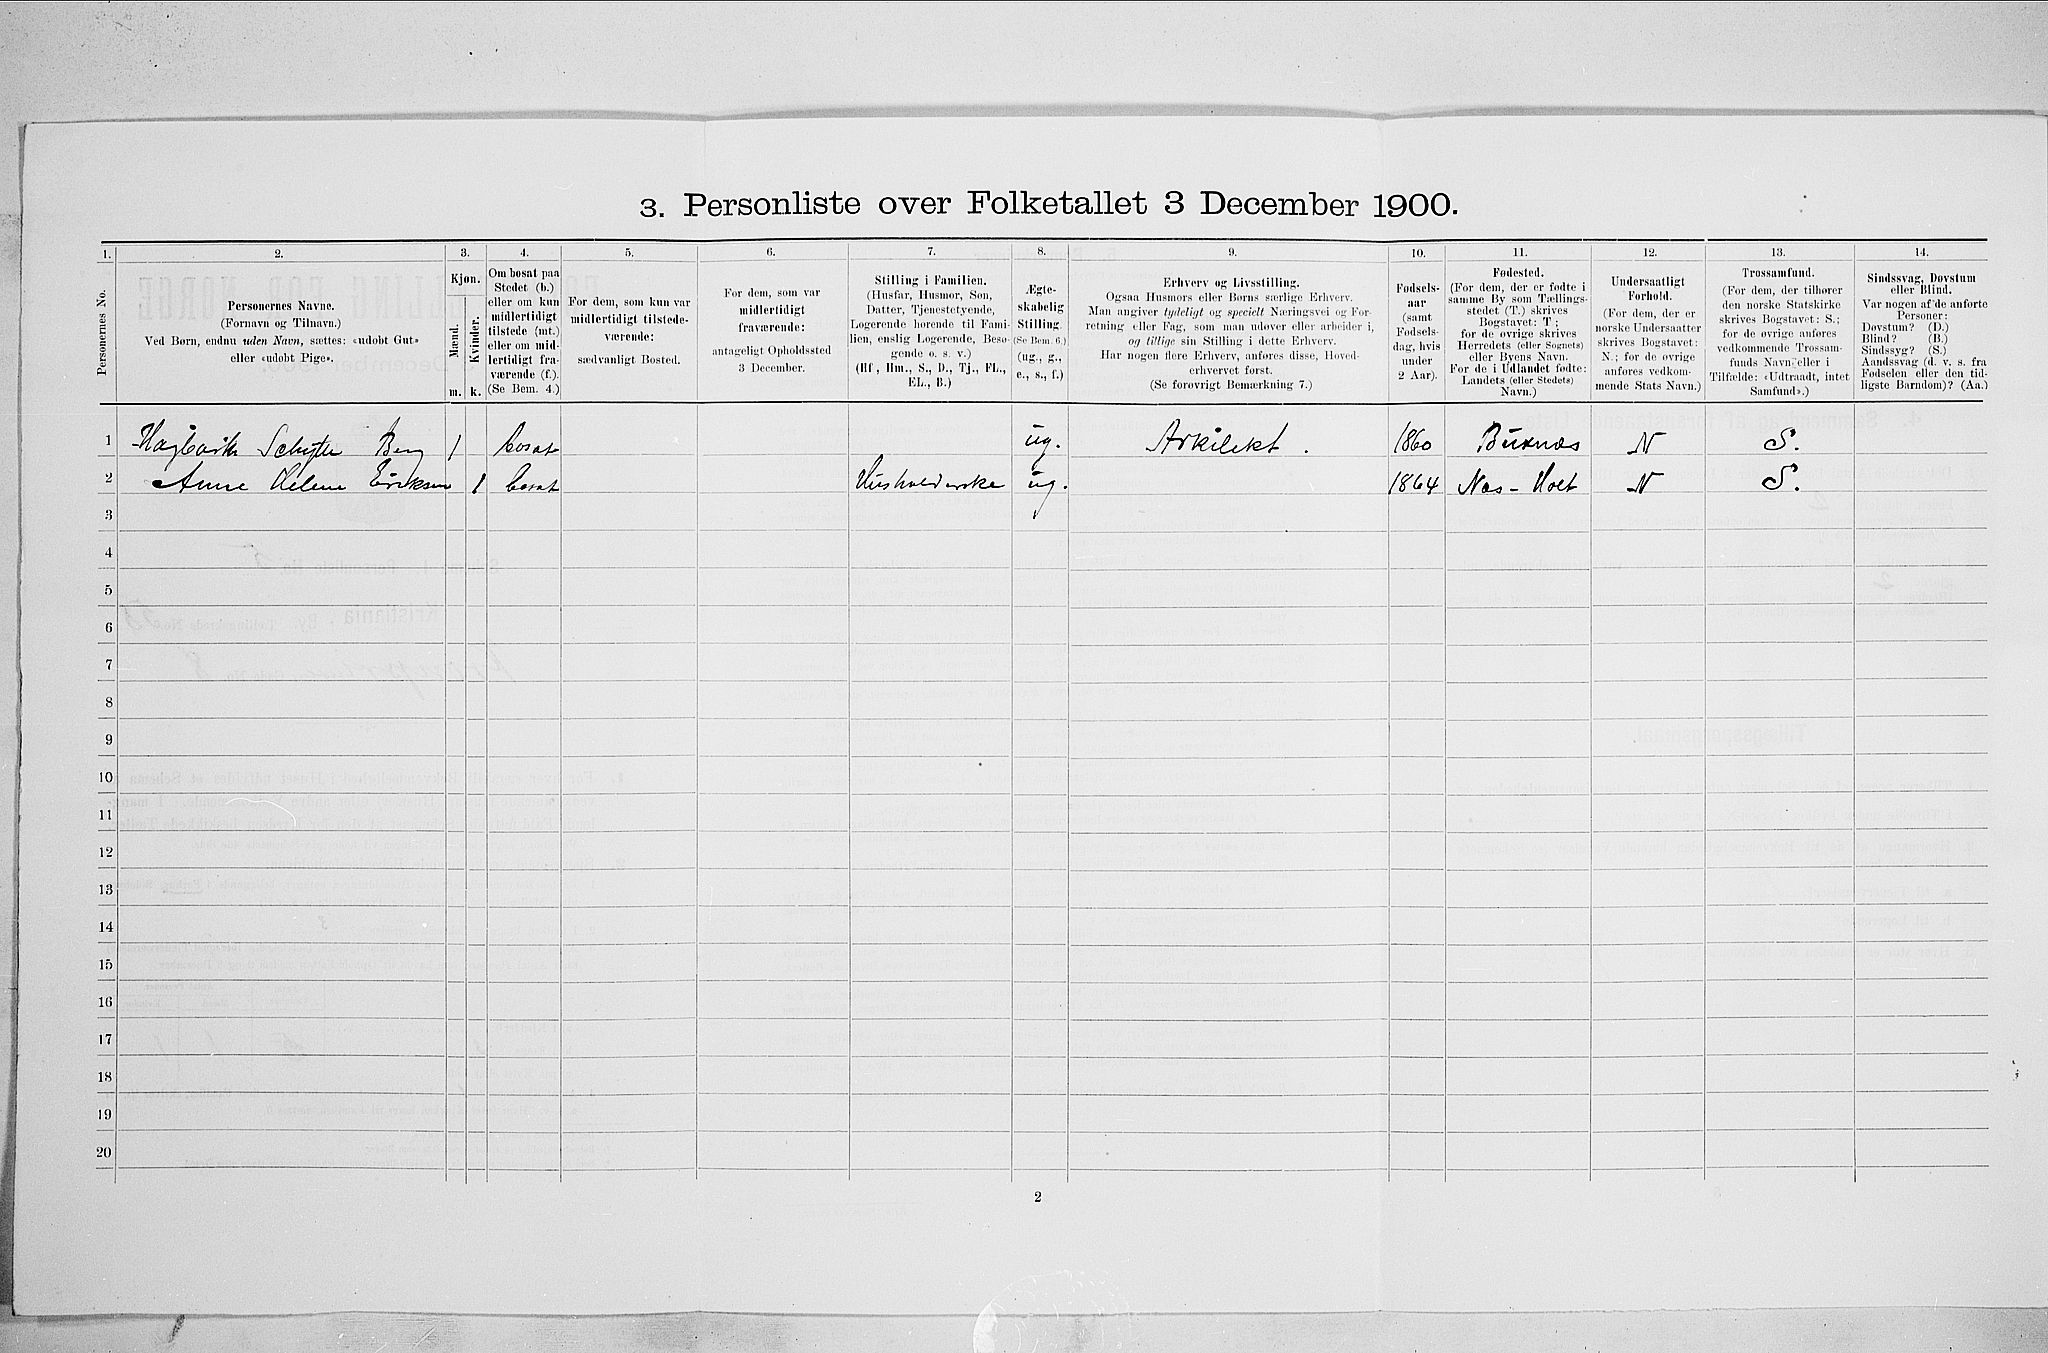 3. Personliste over Folketallet 3 December 1900.
1. 2. 3. 4. 5. 6. 7. 8. 9. 10. 11. 12. 13. 14.
Personernes No.
Personernes Navne.
(Fornavn og Tilnavn.)
Ved Børn, endnu uden Navn, sættes: «udøbt Gut»
eller «udøbt Pige».
Kjøn.
Mænd.
Kvinder.
m. k.
Om bosat paa
Stedet (b.)
eller om kun
midlertidigt
tilstede (mt.)
eller om mid-
lertidigt fra-
værende (f.).
(Se Bem. 4.)
For dem, som kun var
midlertidigt tilstede-
værende:
sædvanligt Bosted.
For dem, som var
midlertidigt
fraværende:
antageligt Opholdssted
3 December.
Stilling i Familien.
(Husfar, Husmor, Søn,
Datter, Tjenestetyende,
Logerende hørende til Fami-
lien, enslig Logerende, Besø-
gende o. s. v.)
(Hf, Hm., S., D., Tj., FL.,
EL., B.)
Ægte-
skabelig
Stilling.
(Se Bem. 6.)
(ug., g.,
e., s., f.)
Erhverv og Livsstilling.
Ogsaa Husmors eller Børns særlige Erhverv.
Man angiver tydeligt og specielt Næringsvei og For-
retning eller Fag, som man udøver eller arbeider i,
og tillige sin Stilling i dette Erhverv.
Har nogen flere Erhverv, anføres disse, Hoved-
erhvervet først.
(Se forøvrigt Bemærkning 7.)
Fødsels-
aar
(samt
Fødsels-
dag, hvis
under
2 Aar).
Fødested.
(For dem, der er fødte i
samme By som Tællings-
stedet (T.) skrives
Bogstavet: T;
for de øvrige skrives
Herredets (eller Sognets)
eller Byens Navn.
For de i Udlandet fødte:
Landets (eller Stedets)
Navn.)
Undersaatligt
Forhold.
(For dem, der er
norske Undersaatter
skrives Bogstavet:
N.; for de øvrige
anføres vedkom-
mende Stats Navn.)
Trossamfund.
(For dem, der tilhører
den norske Statskirke
skrives Bogstavet: S.;
for de øvrige anføres
vedkommende Trossam-
funds Navn, eller i
Tilfælde: «Udtraadt, intet
Samfund».)
Sindssvag, Døvstum
eller Blind.
Var nogen af de anførte
Personer:
Døvstum? (D.)
Blind? (B.)
Sindssyg? (S.)
Aandssvag (d. v. s. fra
Fødselen eller den tid-
ligste Barndom)? (Aa.)
1 Hagbarth Schytte Berg 1 bosat ug. Arkitekt. 1860 Buxnæs N S.
2 Anne Helene Eriksen 1 bosat Husholderske ug. 1864 Næs - Holt N S.
3
4
5
6
7
8
9
10
11
12
13
14
15
16
17
18
19
20
2